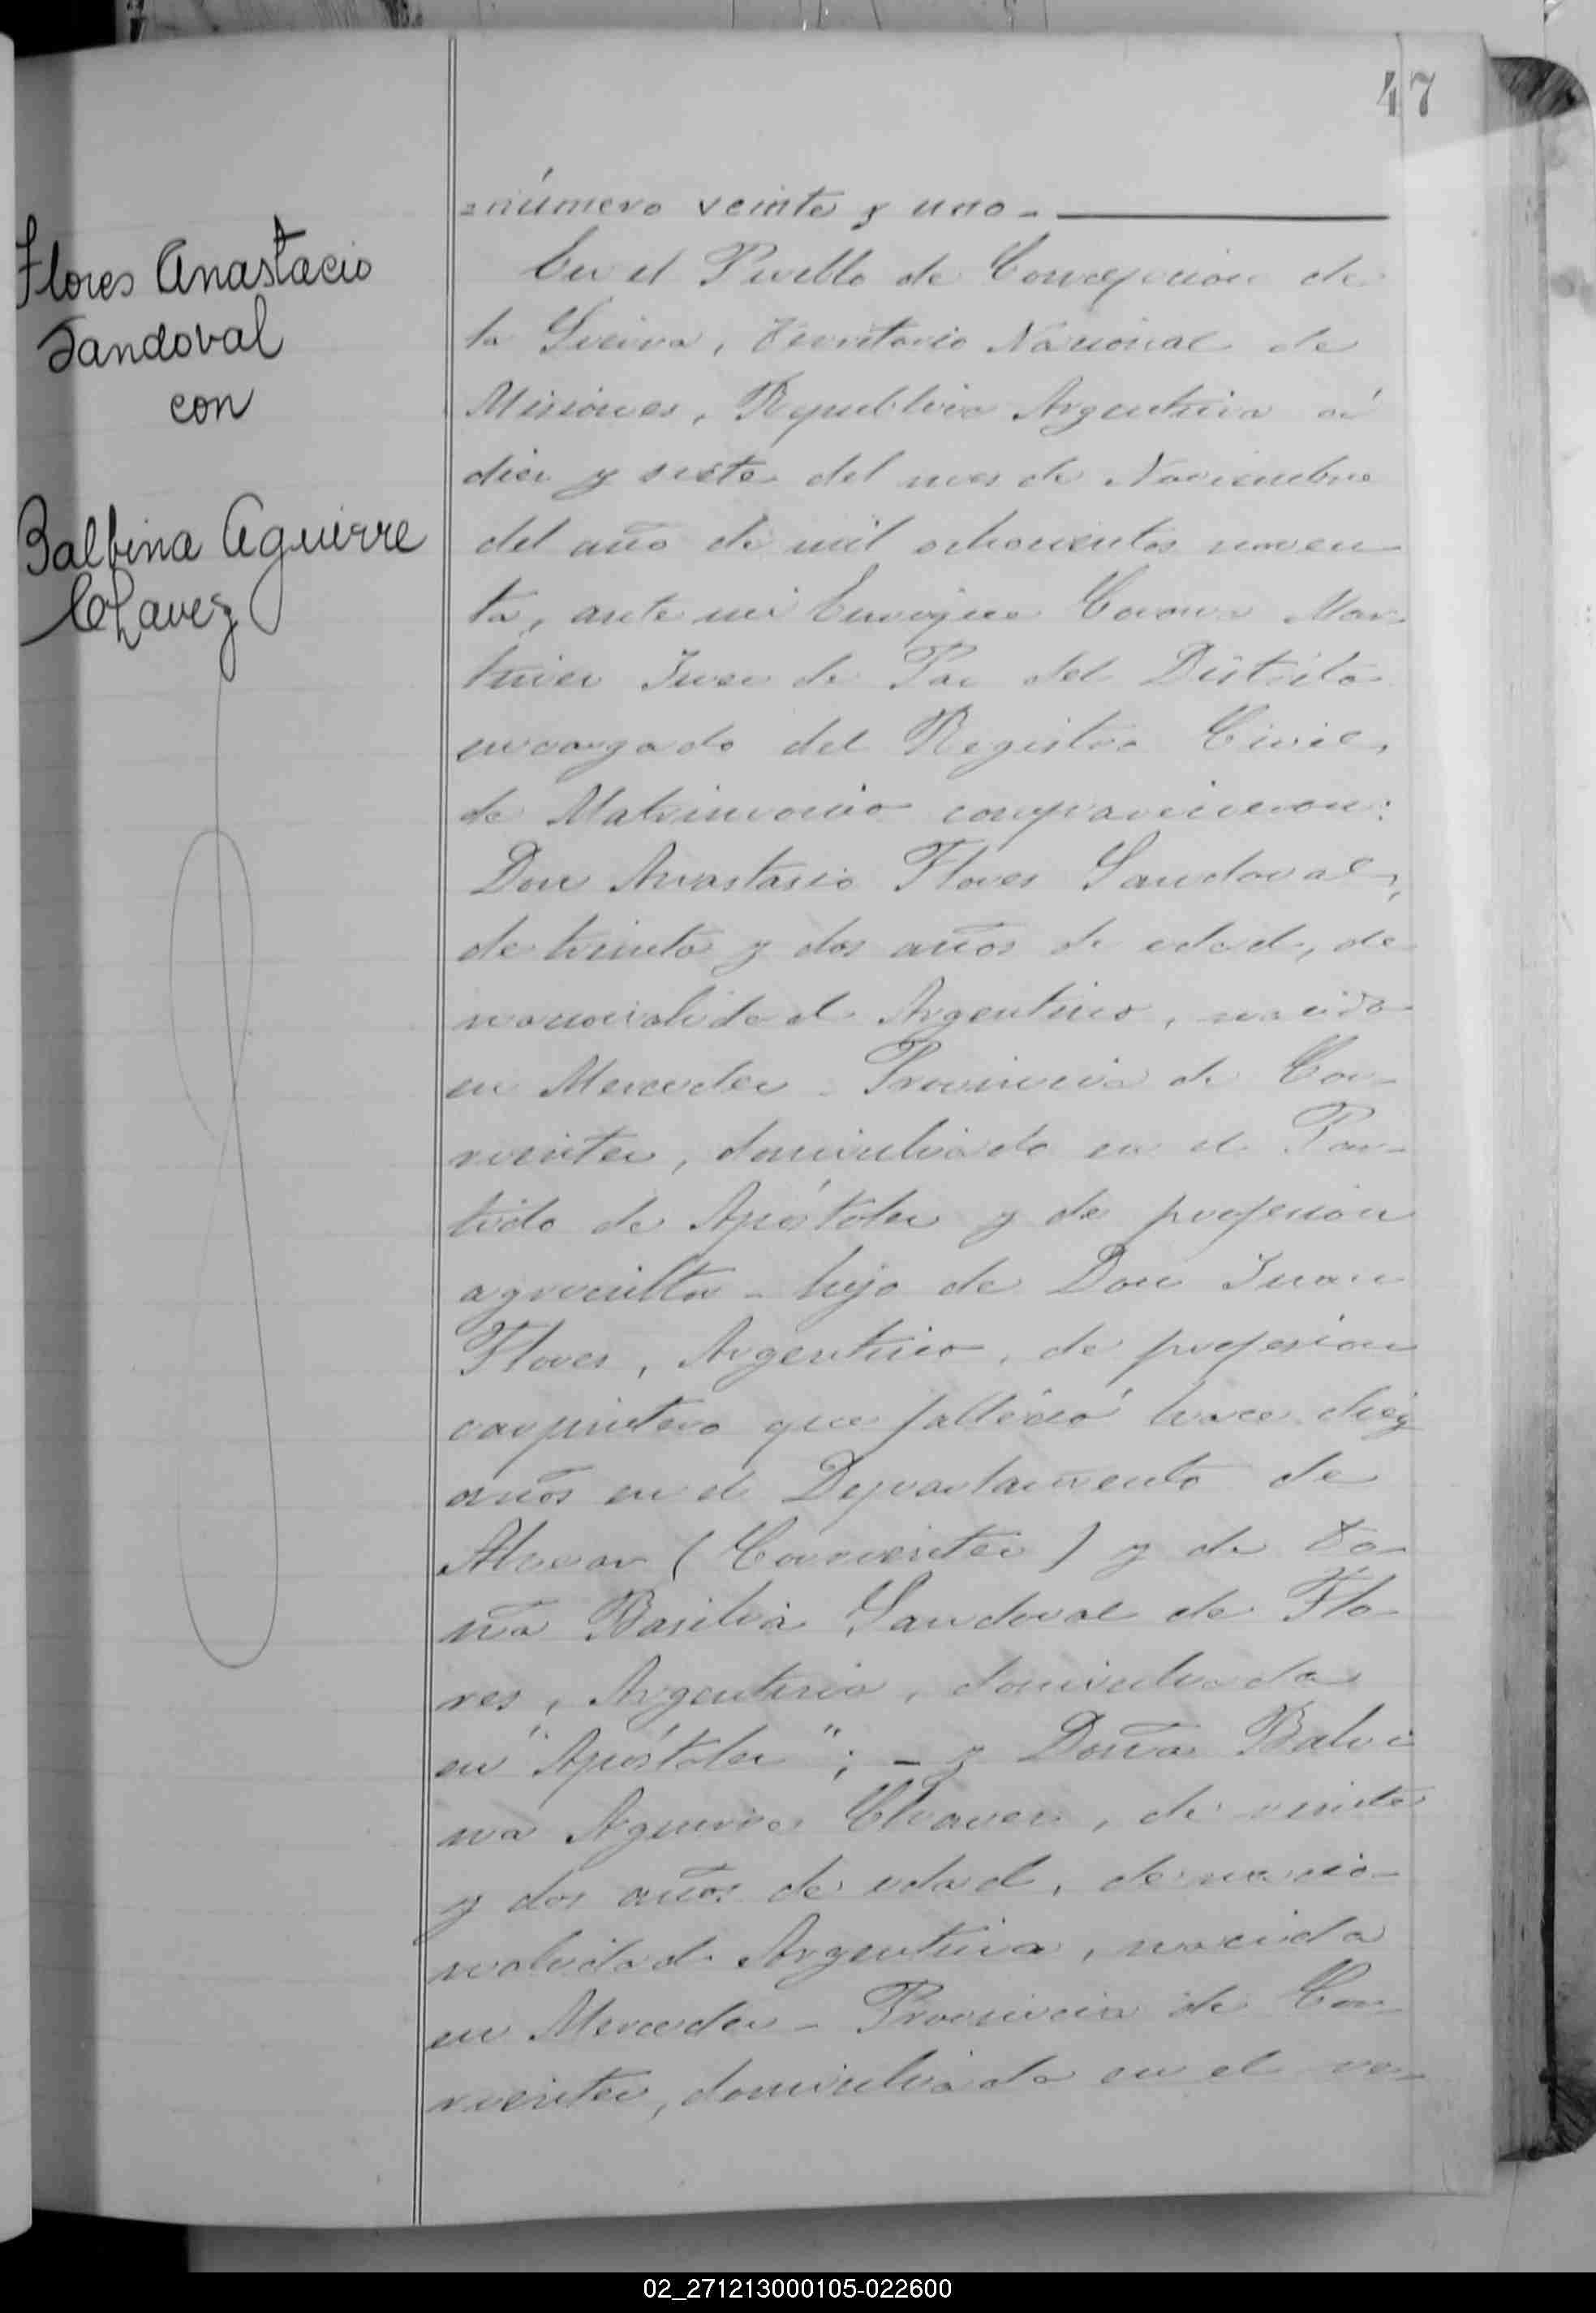 47
Flores Anastacio
Sandoval
con
Balbina Aguirre
Chavez
=número veinte y uno-
En el Pueblo de Concepcion de
la Sierra, Territorio Nacional de
Misiones, Republica Argentina á
diez y siete del mes de Noviembre
del año de mil ochocientos noven-
ta, ante mi Corona Mar-
tinez Juez de Paz del Distrito
encargado del Registro Civil,
de Matrimonio comparecieron:
Don Anastasio Flores Sandoval,
de treinta y dos años de edad, de
nacionalidad Argentino, nacido
en Mercedes - Provincia de Cor-
rientes, domiciliado en el Par-
tido de Apóstoles y de profesion
agricultor - hijo de Don Juan
Flores, Argentino, de profesion
carpintero que falleció hace diez
años en el Departamento de
Alvear (Corrientes) y de Do-
ña Basilia Sandoval de Flo-
res, Argentina, domiciliada
en "Apóstoles"; - y Doña Balvi
na Aguirre Chavez, de veinte
y dos años de edad, de nacio-
nalidad Argentina, nacida
en Mercedes - Provincia de Cor-
rientes, domiciliada en el
02_271213000105-022600